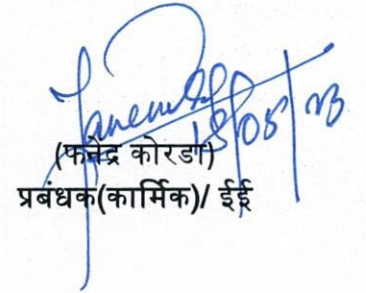 18/05/23
(फनेंद्र कोरडा)
प्रबंधक(कार्मिक)/ ईई